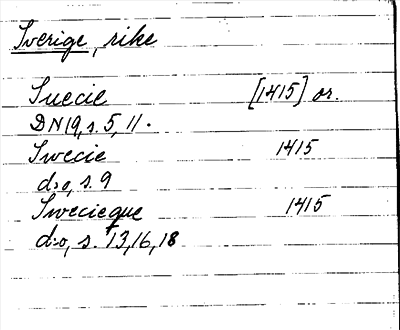 Sverige, rike
Suecie [1415] or.
DN19, s. 5, 11.
Swecie 1415
d:o, s. 9
Swecieque 1415
d:o, s. 13, 16, 18